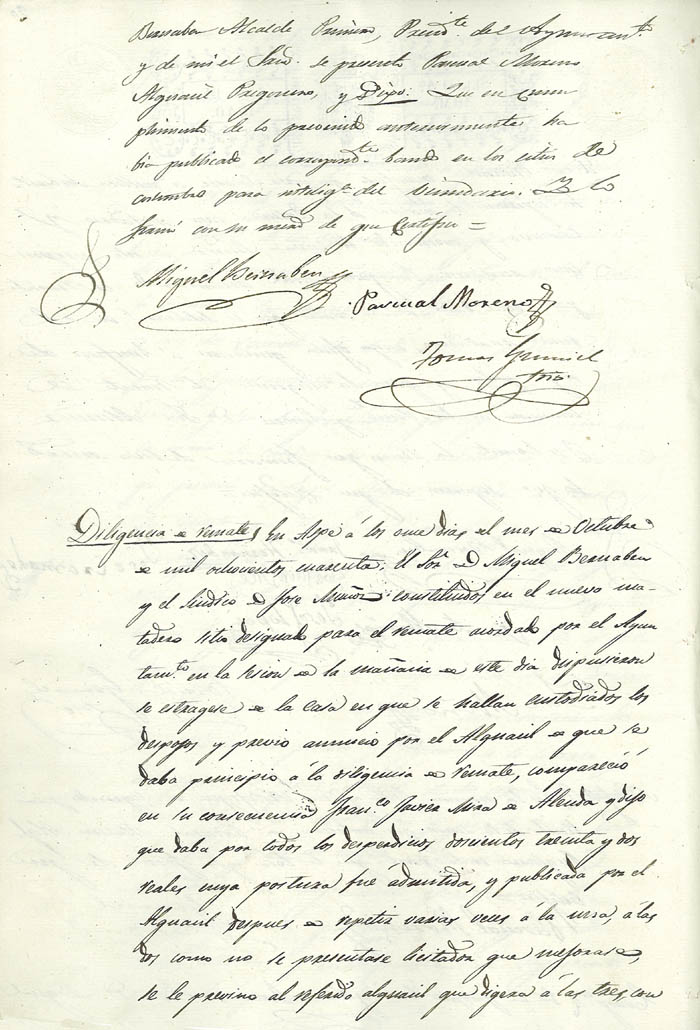 Bernabeu Alcalde Primero, Presid.te del Ayuntam.to
y de mi el Srio. se presentó Pascual Moreno
Alguacil Pregonero, y Dijo: Que en cum
plimiento de lo prevenido anteriormente ha
bia publicado el correspond.te bando en los sitios de
costumbre para intelig.a del vecindario. Y lo
firmó con su merd de que Certifico =
Miguel Bernabeu
Pascual Moreno
Tomas
Srio.
Diligencia de remate, En Aspe á los once dias del mes de Octubre
de mil ochocientos cuarenta: El Sor. D. Miguel Bernabeu
y el Sindico D. Jose Muñoz constituidos en el nuevo ma-
tadero sitio designado para el remate acordado por el Ayun
tam.to en la sesion de la mañana de este dia dispusieron
se estragese de la casa en que se hallan custodiados los
despojos y previo anuncio por el Alguacil de que se
daba principio á la diligencia de remate, compareció
en su consecuencia Fran.co Javier Mira de Alenda y dijo
que daba por todos los desperdicios doscientos treinta y dos
reales cuya postura fué admitida, y publicada por el
Alguacil despues de repetir varias veces á la una, á las
dos como no se presentase licitador que mejorase,
se le previno al referido alguacil que digera á las tres, con